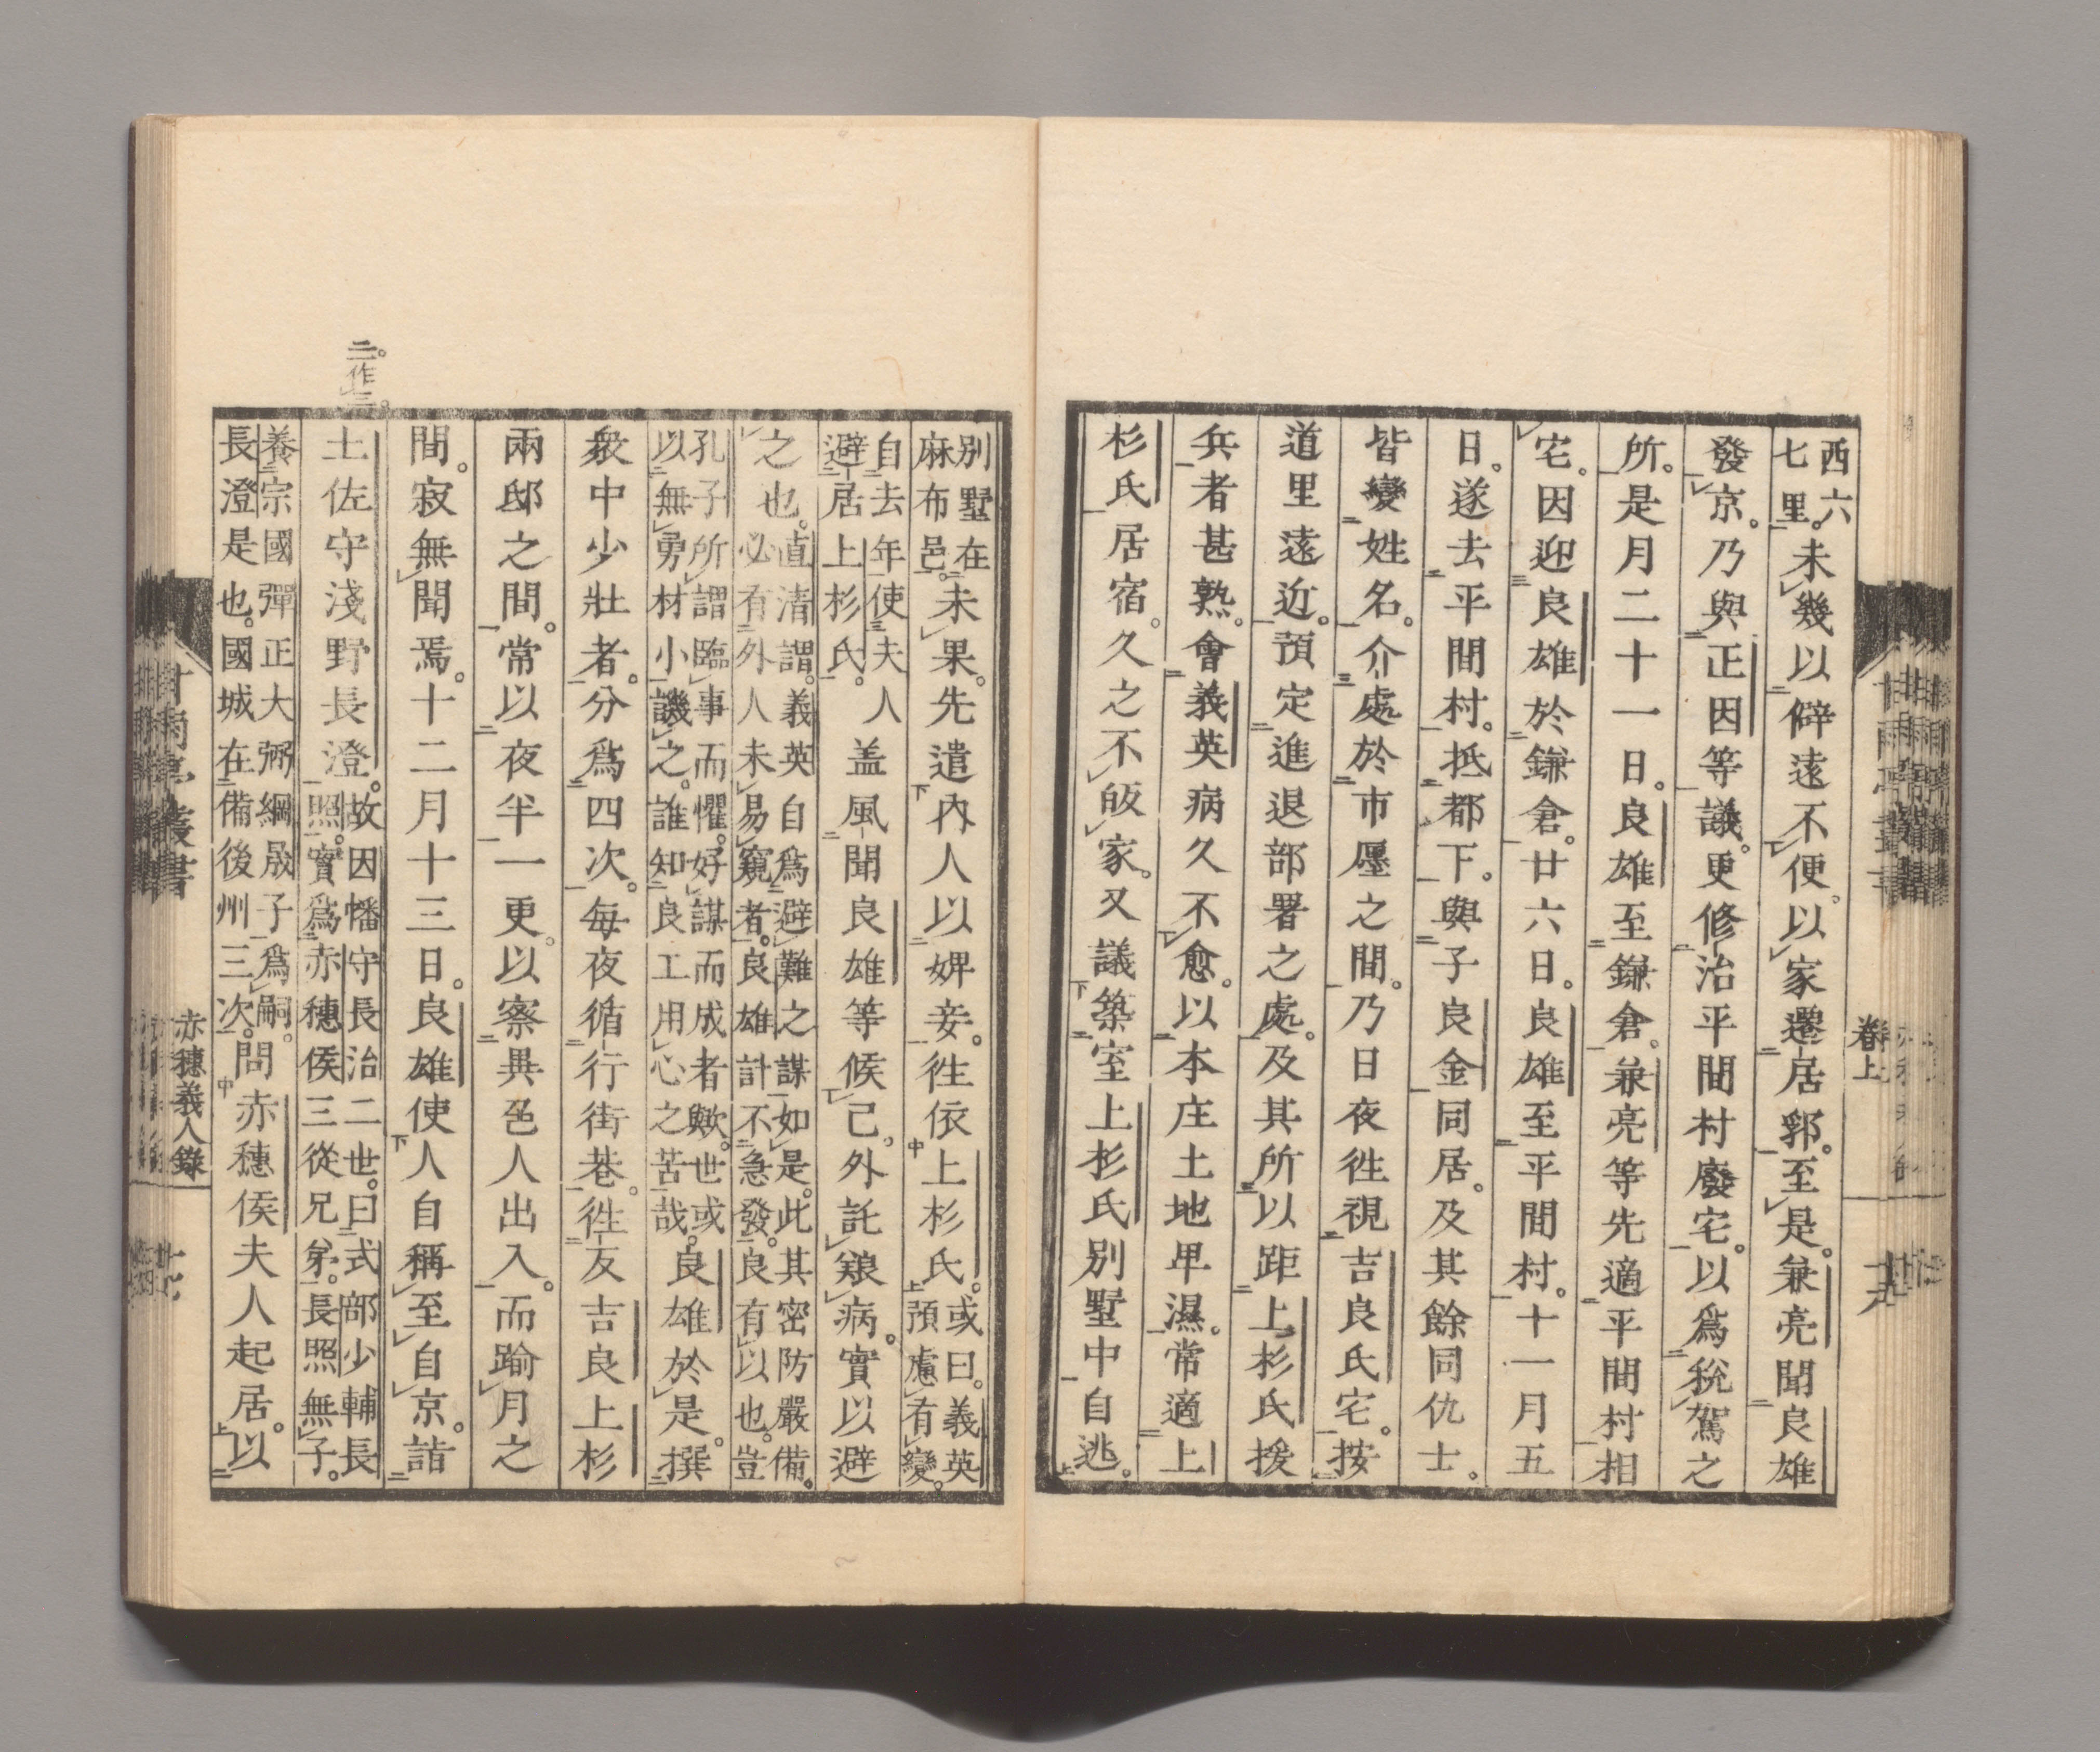 西六七里。未幾以僻遠不便。以家遷居郭。至是。兼亮聞良雄
發京。乃與正因等議。更修治平間村廢宅。以爲稅駕之
所。是月二十一日。良雄至鎌倉。兼亮等先適平間村相
宅。因迎良雄於鎌倉。廿六日。良雄至平間村。十一月五
日。遂去平間村。抵都下。與子良金同居。及其餘同仇士。
皆變姓名。介處於市廛之間。乃日夜徃視吉良氏宅。按
道里遠近。預定進退部署之處。及其所以距上杉氏援
兵者甚熟。會義英病久不愈。以本庄土地卑濕。常適上
杉氏居宿。久之不皈家。又議築室上杉氏別墅中自逃。
卷上
別墅在麻布邑。未果。先遣內人以婢妾。徃依上杉氏。或曰。義英預慮有變。
自去年使夫人避居上杉氏。盖風聞良雄等候己。外託艱病。實以避
之也。直清謂。義英自爲避難之謀如是。此其密防嚴備。必有外人未易窺者。良雄計不急發。良有以也。豈
孔子所謂臨事而懼。好謀而成者歟。世或以無勇材小譏之。誰知良工用心之苦哉。良雄於是。撰
衆中少壯者。分爲四次。每夜循行街巷。徃反吉良上杉
兩邸之間。常以夜半一更。以察異色人出入。而踰月之
間。寂無聞焉。十二月十三日。良雄使人自稱至自京。詣
二。作三。
土佐守淺野長澄。故因幡守長治二世。曰式部少輔長照。實爲赤穗侯三從兄弟。長照無子。
養宗國彈正大弼綱晟子爲嗣。長澄是也。國城在備後州三次。問赤穗侯夫人起居。以
赤穗義人錄